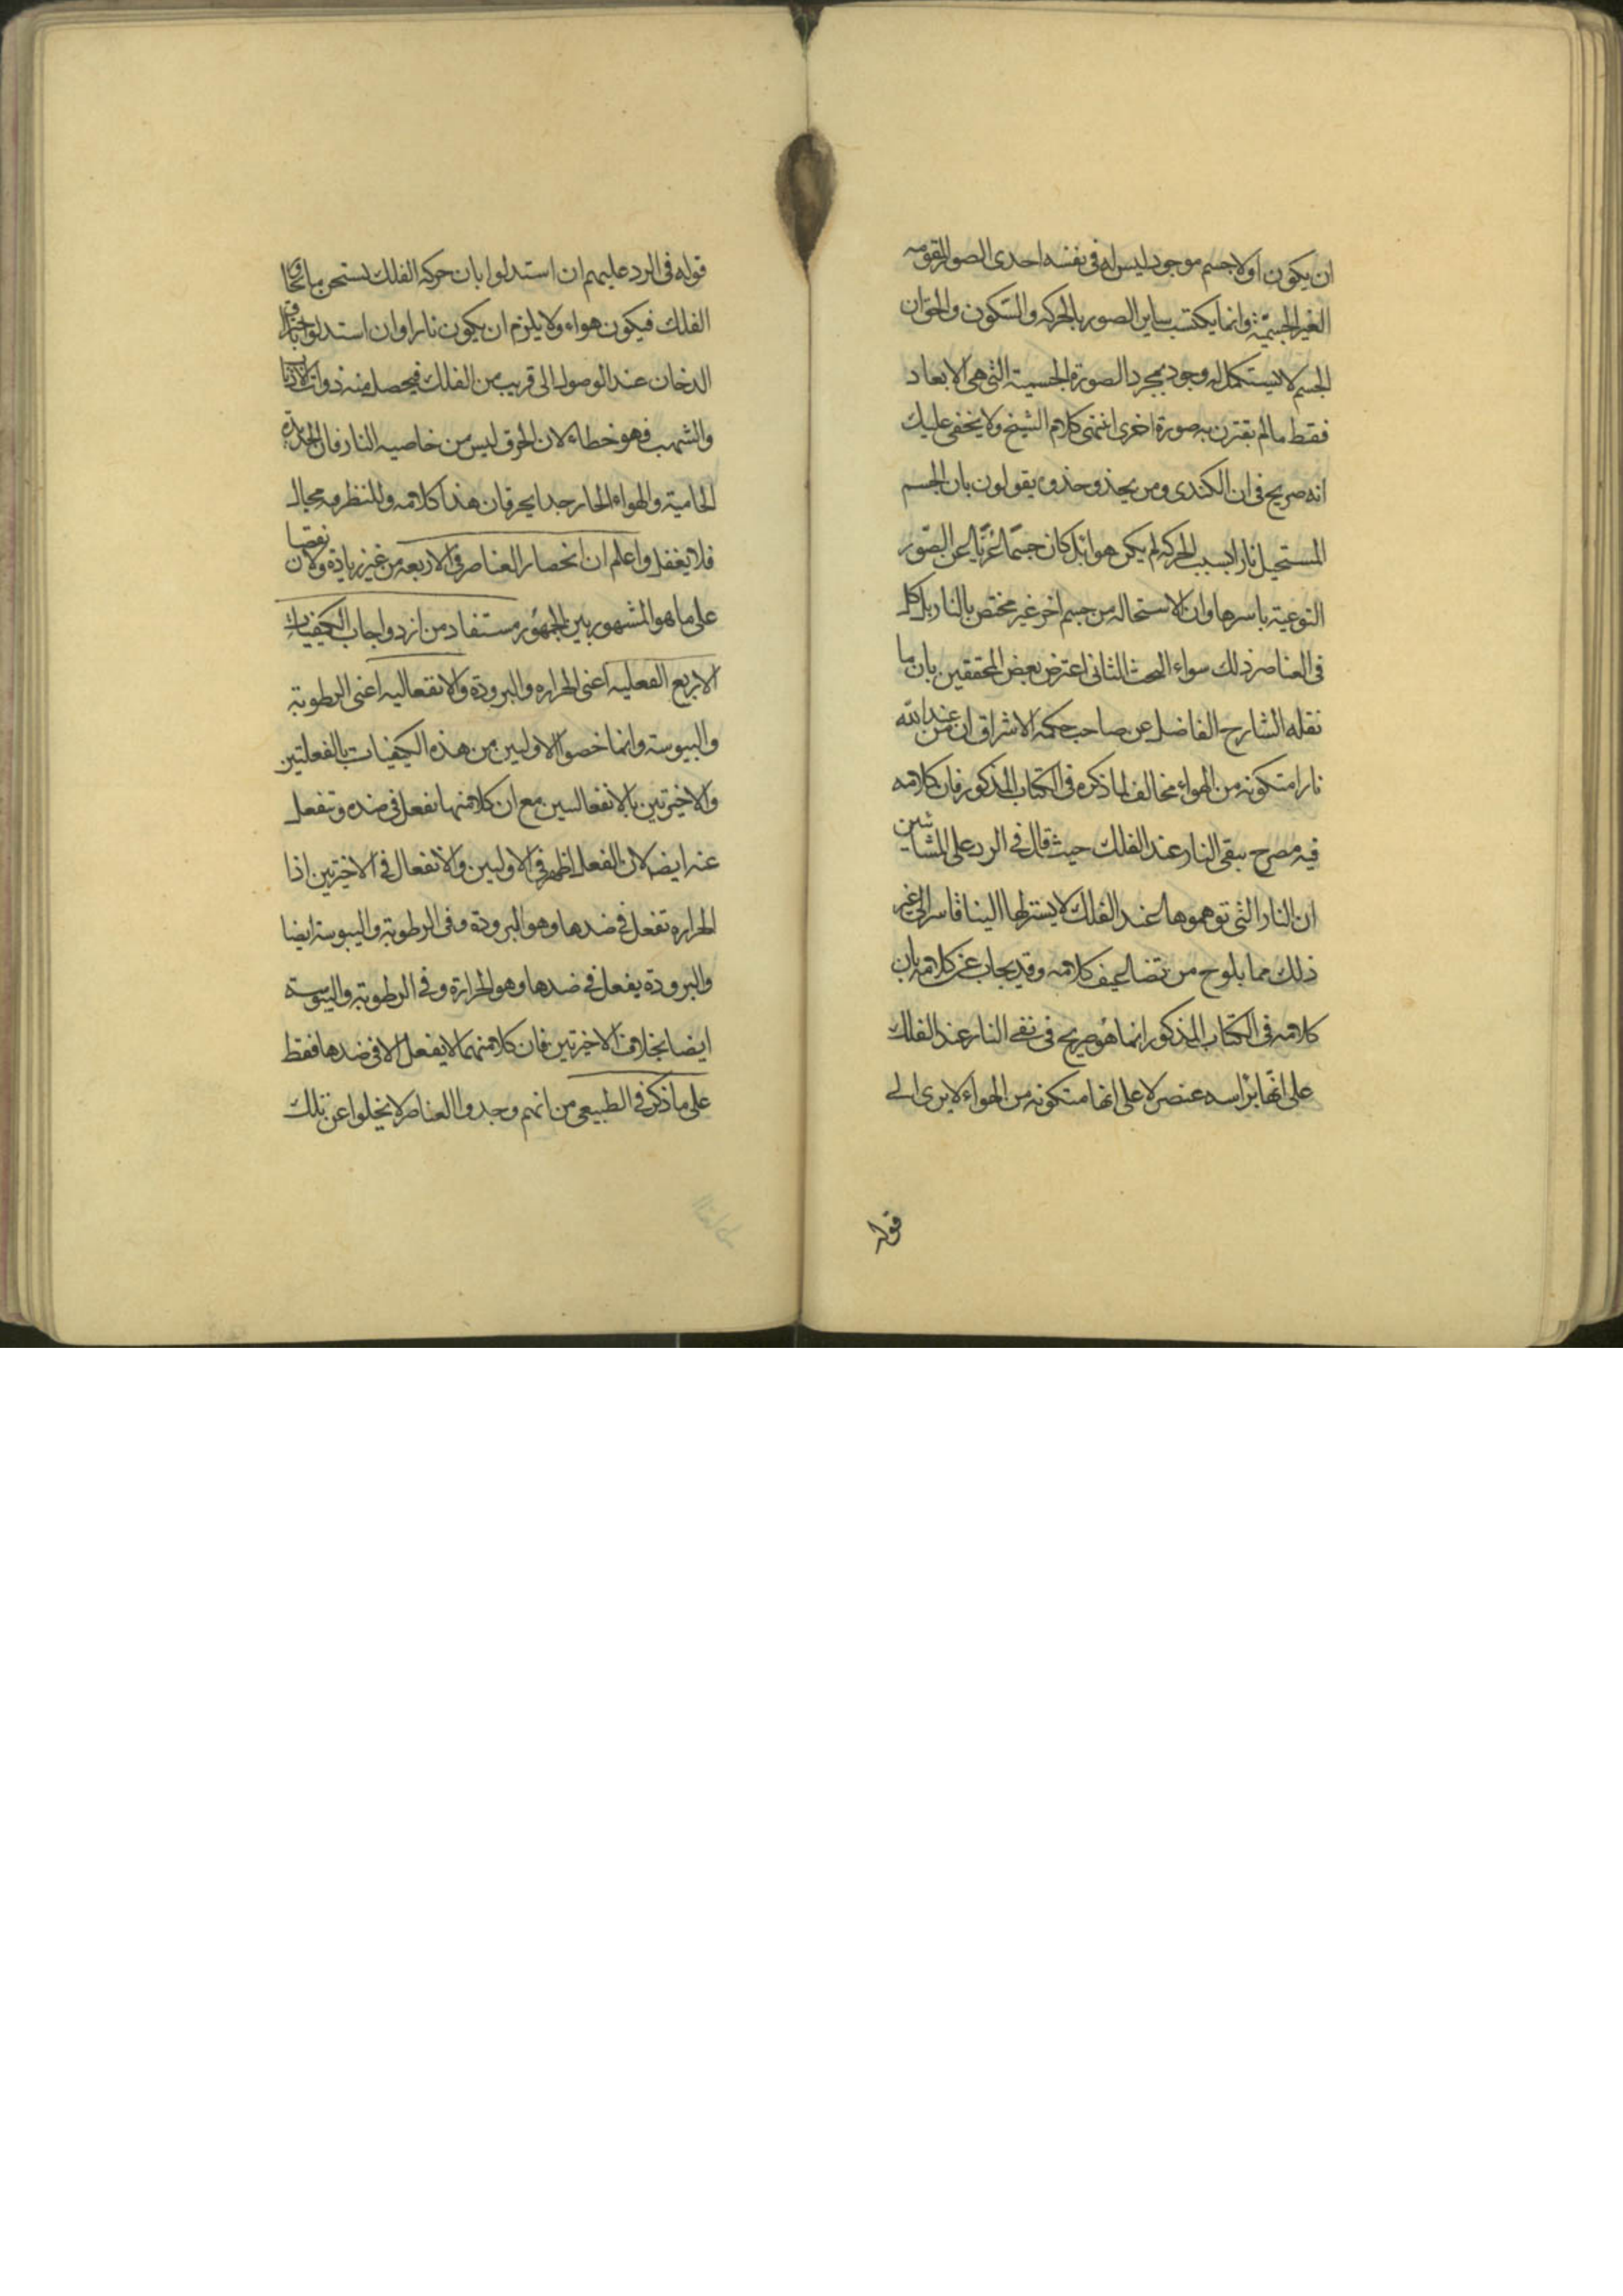 ان يكون اولا جسم موجود ليس له فى نفسه احدى الصور المقومه
الغير الجسميّة وانما يكتسب ساير الصور بالحركه والسّكون والحقّ ان
الجسم لا يستكمل له وجود بمجرد الصورة الجسمية التى هى الابعاد
فقط ما لم يقترن به صورة اخرى انتهى كلام الشيخ ولا يخفى عليك
انه صريح فى ان الكندى ومن يحذو حذوه يقولون بان الجسم
المستحيل نارا بسبب الحركه لم يكن هوا بل كان جسمًا عريًّا عن الصّور
النوعية باسرها وان الاستحاله من جسم اخر غير مختص بالنار بل كل
فى العناصر ذلك سواء البحث الثانى اعترض بعض المحققين بان ما
نقله الشارح الفاضل عن صاحب حكمه الاشراق ان من عنده
نارا متكونه من الهواء مخالف لما ذكره فى الكتاب المذكور فان كلامه
فيه مصرح بنفى النار عند الفلك حيث قال فى الرد على المشائين
ان النار التى توهموها عند الفلك لا يستنزلها الينا قاسر الى غير
ذلك مما يلوح من تضاعيف كلامه وقد يجاب عن كلامه بان
كلامه فى الكتاب المذكور انما هو صريح فى نفى النار عند الفلك
على انها براسه عنصر لا على انها متكونه من الهواء لا يرى الى
قوله
قوله فى الرد عليهم ان استدلوا بان حركه الفلك تسخن ما يحاوى
الفلك فيكون هواء ولا يلزم ان يكون نارا وان استدلوا باحتراق
الدخان عند الوصول الى قريب من الفلك فيحصل منه ذوات الاذناب
والشهب فهو خطاء لان الحرق ليس من خاصيه النار فان الحديدة
الحامية والهواء الحار جدا يحرقان هذا كلامه وللنظر فيه مجال
فلا يغفل واعلم ان انحصار العناصر فى الاربعه من غير زيادة ولا نقصان
على ما هو المشهور بين الجمهور مستفاد من ازدواجات الكيفيات
الاربع الفعليه اعنى الحراره والبرودة والانفعاليه اعنى الرطوبة
واليبوسة وانما خصوا الاوليين من هذه الكيفيات بالفعلتين
والاخيرتين بالانفعاليين مع ان كلا منها تفعل فى ضده وتنفعل
عنه ايضا لان الفعل اظهر فى الاوليين والانفعال فى الاخيرتين اذا
الحراره تفعل فى ضدها وهو البرودة وفى الرطوبة واليبوسة ايضا
والبرودة يفعل فى ضدها وهو الحرارة وفى الرطوبة واليبوسة
ايضا بخلاف الاخيرتين فان كلا منهما لا يفعل الا فى ضدها فقط
على ما ذكر فى الطبيعى من انهم وجدوا العناصر لا يخلوا عن تلك